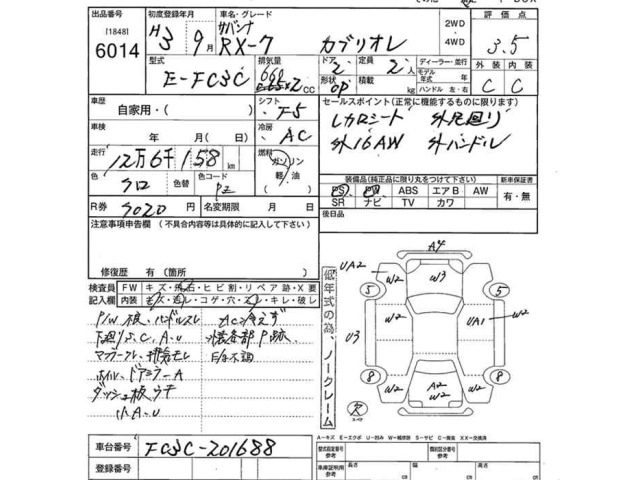 出品番号 初度登録年月 車名・グレード 2WD 評価点
[1848] H3 9月 サバンナ RX-7 カブリオレ ・
6014 4WD 3.5
型式 排気量 ドア 定員 ディーラー・並行 外装 内装
E-FC3C 660 2 2人 モデル年式 年
0.65×2 CC 形状 OP 積載 kg ハンドル 左・右 C C
車歴 シフト セールスポイント(正常に機能するものに限ります)
自家用・( ) F5 レカロシート 外足廻り
車検 冷房 外16AW 外ハンドル
年 月(日) AC
走行 燃料
12万6千158 km ガソリン 装備品(純正品に限り丸をつけて下さい) 新車保証書
色 色替 色コード 軽・油 PS PW ABS エアB AW 有・無
クロ PZ SR ナビ TV カワ
R券 9020 円 名変期限 月 日 後日品
注意事項申告欄(不具合内容は具体的に記入して下さい)
修復歴 有(箇所 )
検査員 FW キズ・飛石・ヒビ割・リペア跡・X要
記入欄 内装 キズ・汚レ・コゲ・穴・スレ・キレ・破レ
P/W 不良、ハンドルスレ ACン冷えず
下廻りS、C、A、U
マフラーフレ、排気モレ
ホイル、ドアミラーA
ダッシュ板ウキ
小A、U
低年式の為、ノークレーム
A4
UA2 W2 W3 W2
5 5
U3 W2 UA1 W2
8 W2 A2 W2 W2 8
欠
スペア
A-キズ E-エクボ U-凹み W-補修跡 S-サビ C-腐食 XX-交換済
車台番号 FC3C-201688 型式指定番号 参考 類別区分番号 参考
登録番号 車庫証明用 参考 長さ 幅 高さ